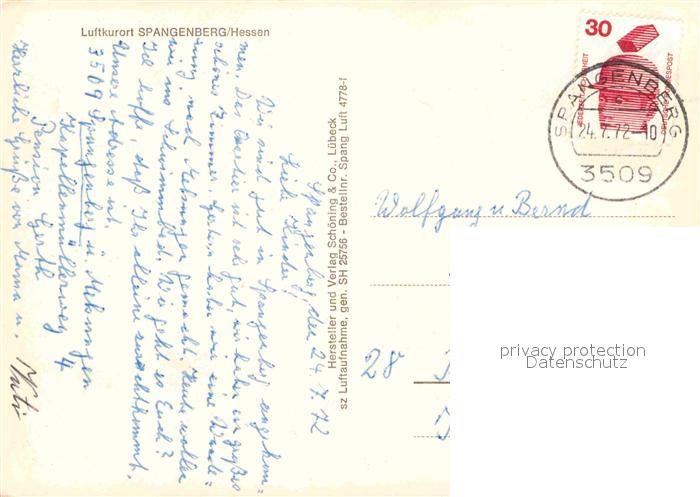 Luftkurort SPANGENBERG/Hessen
Spangenberg, den 24.7.72
Liebe Kinder!
Wir sind gut in Spangenberg angekom=
men. Das Quartier ist sehr gut, wir haben ein großes
schönes Zimmer. Gestern haben wir eine Wande=
rung nach Melsungen gemacht. Heute wollen
wir ins Schwimmbad. Wie geht es Euch?
Ich hoffe, daß Ihr alleine zurechtkommt.
Unsere Adresse ist.
3509 Spangenberg ü. Melsungen
Kapellenmüllerweg 4
Pension
Herzliche Grüße von Mama u.
Vati
Hersteller und Verlag Schöning & Co., Lübeck
sz Luftaufnahme, gen. SH 25756 - Bestellnr. Spang Luft 4778-f
30
JEDERZEIT SICHERHEIT
DEUTSCHE BUNDESPOST
SPANGENBERG
c
24.7.72-10
3509
Wolfgang u. Bernd
28
privacy protection
Datenschutz